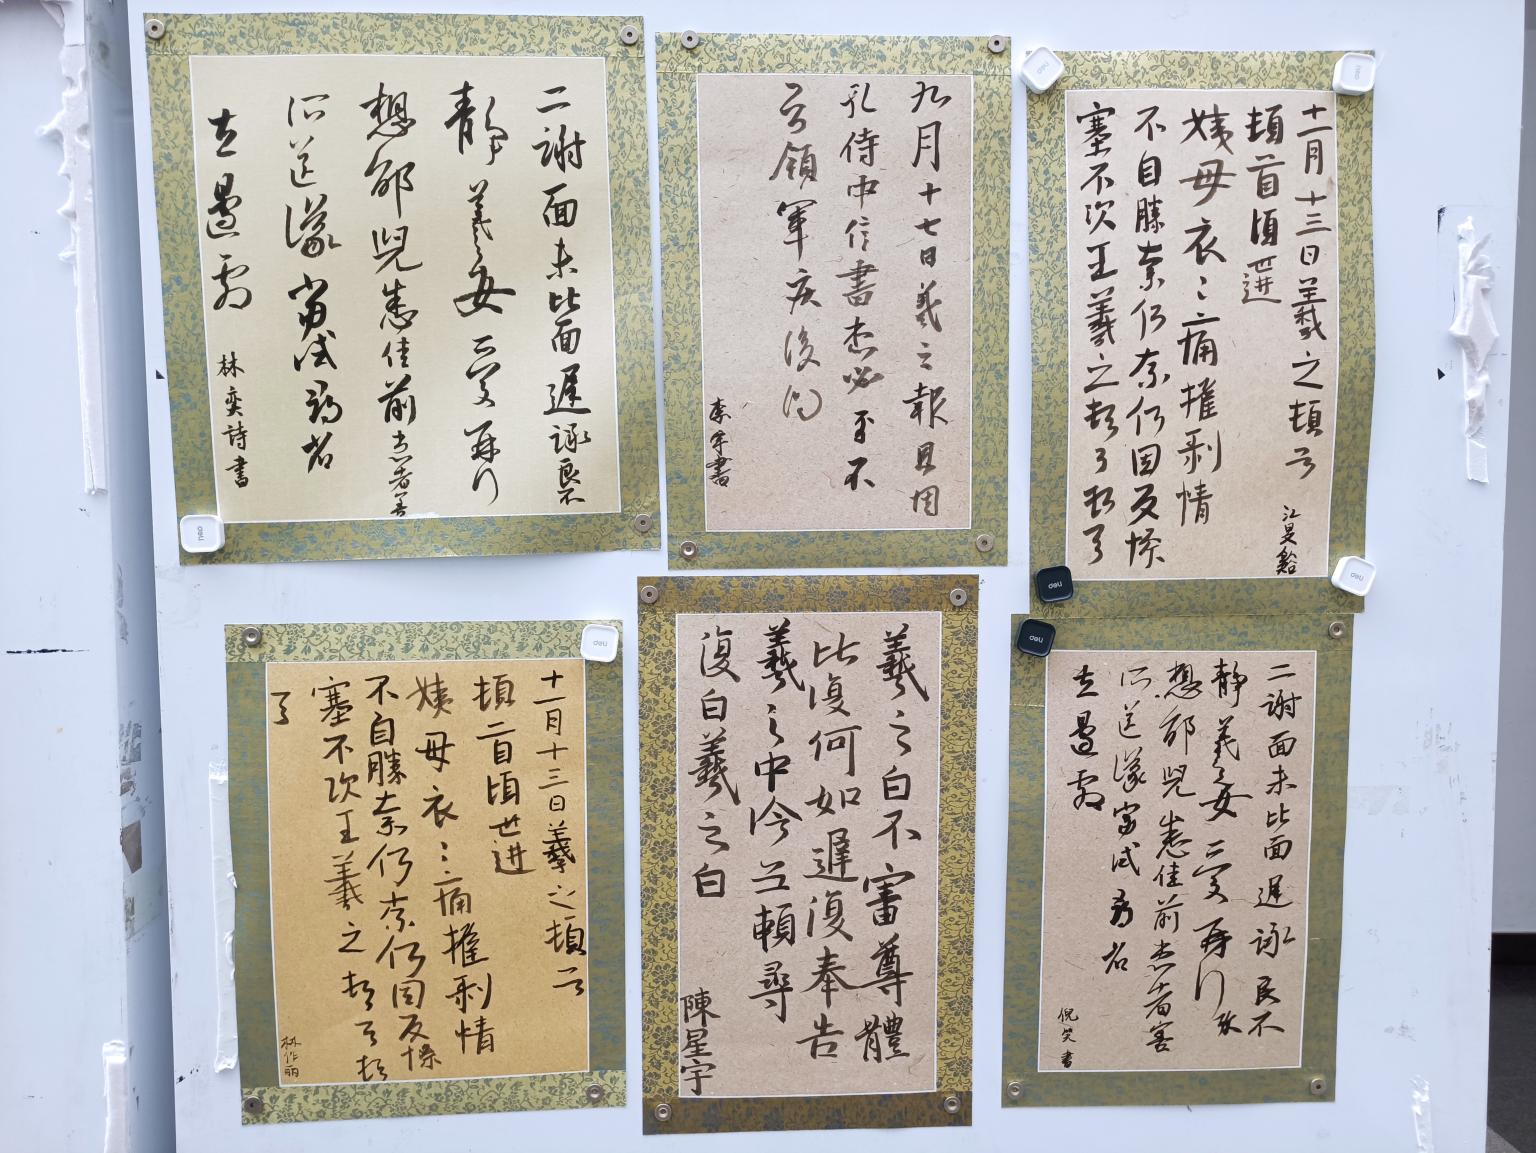 二謝面未比面遲詠良不
靜羲之女愛再行
想邰兒悉佳前患者善
所送議當試尋省
左邊劇
林奕詩書
九月十七日羲之報且因
孔侍中信書想必至不
知領軍疾後問
李宇書
十一月十三日羲之頓首
頓首頃遘
姨母哀哀痛摧剥情
不自勝奈何奈何因反慘
塞不次王羲之頓首頓首
deli
deli
deli
deli
deli
deli
deli
十一月十三日羲之頓首
頓首頃遘
姨母哀哀痛摧剥情
不自勝奈何奈何因反慘
塞不次王羲之頓首頓
首
林作丽
羲之白不審尊體
比復何如遲復奉告
羲之中冷無賴尋
復白羲之白
陳星宇
二謝面未比面遲詠良不
靜羲之女愛再行
想邰兒悉佳前患者善
所送議當試尋省
左邊劇
倪笑書